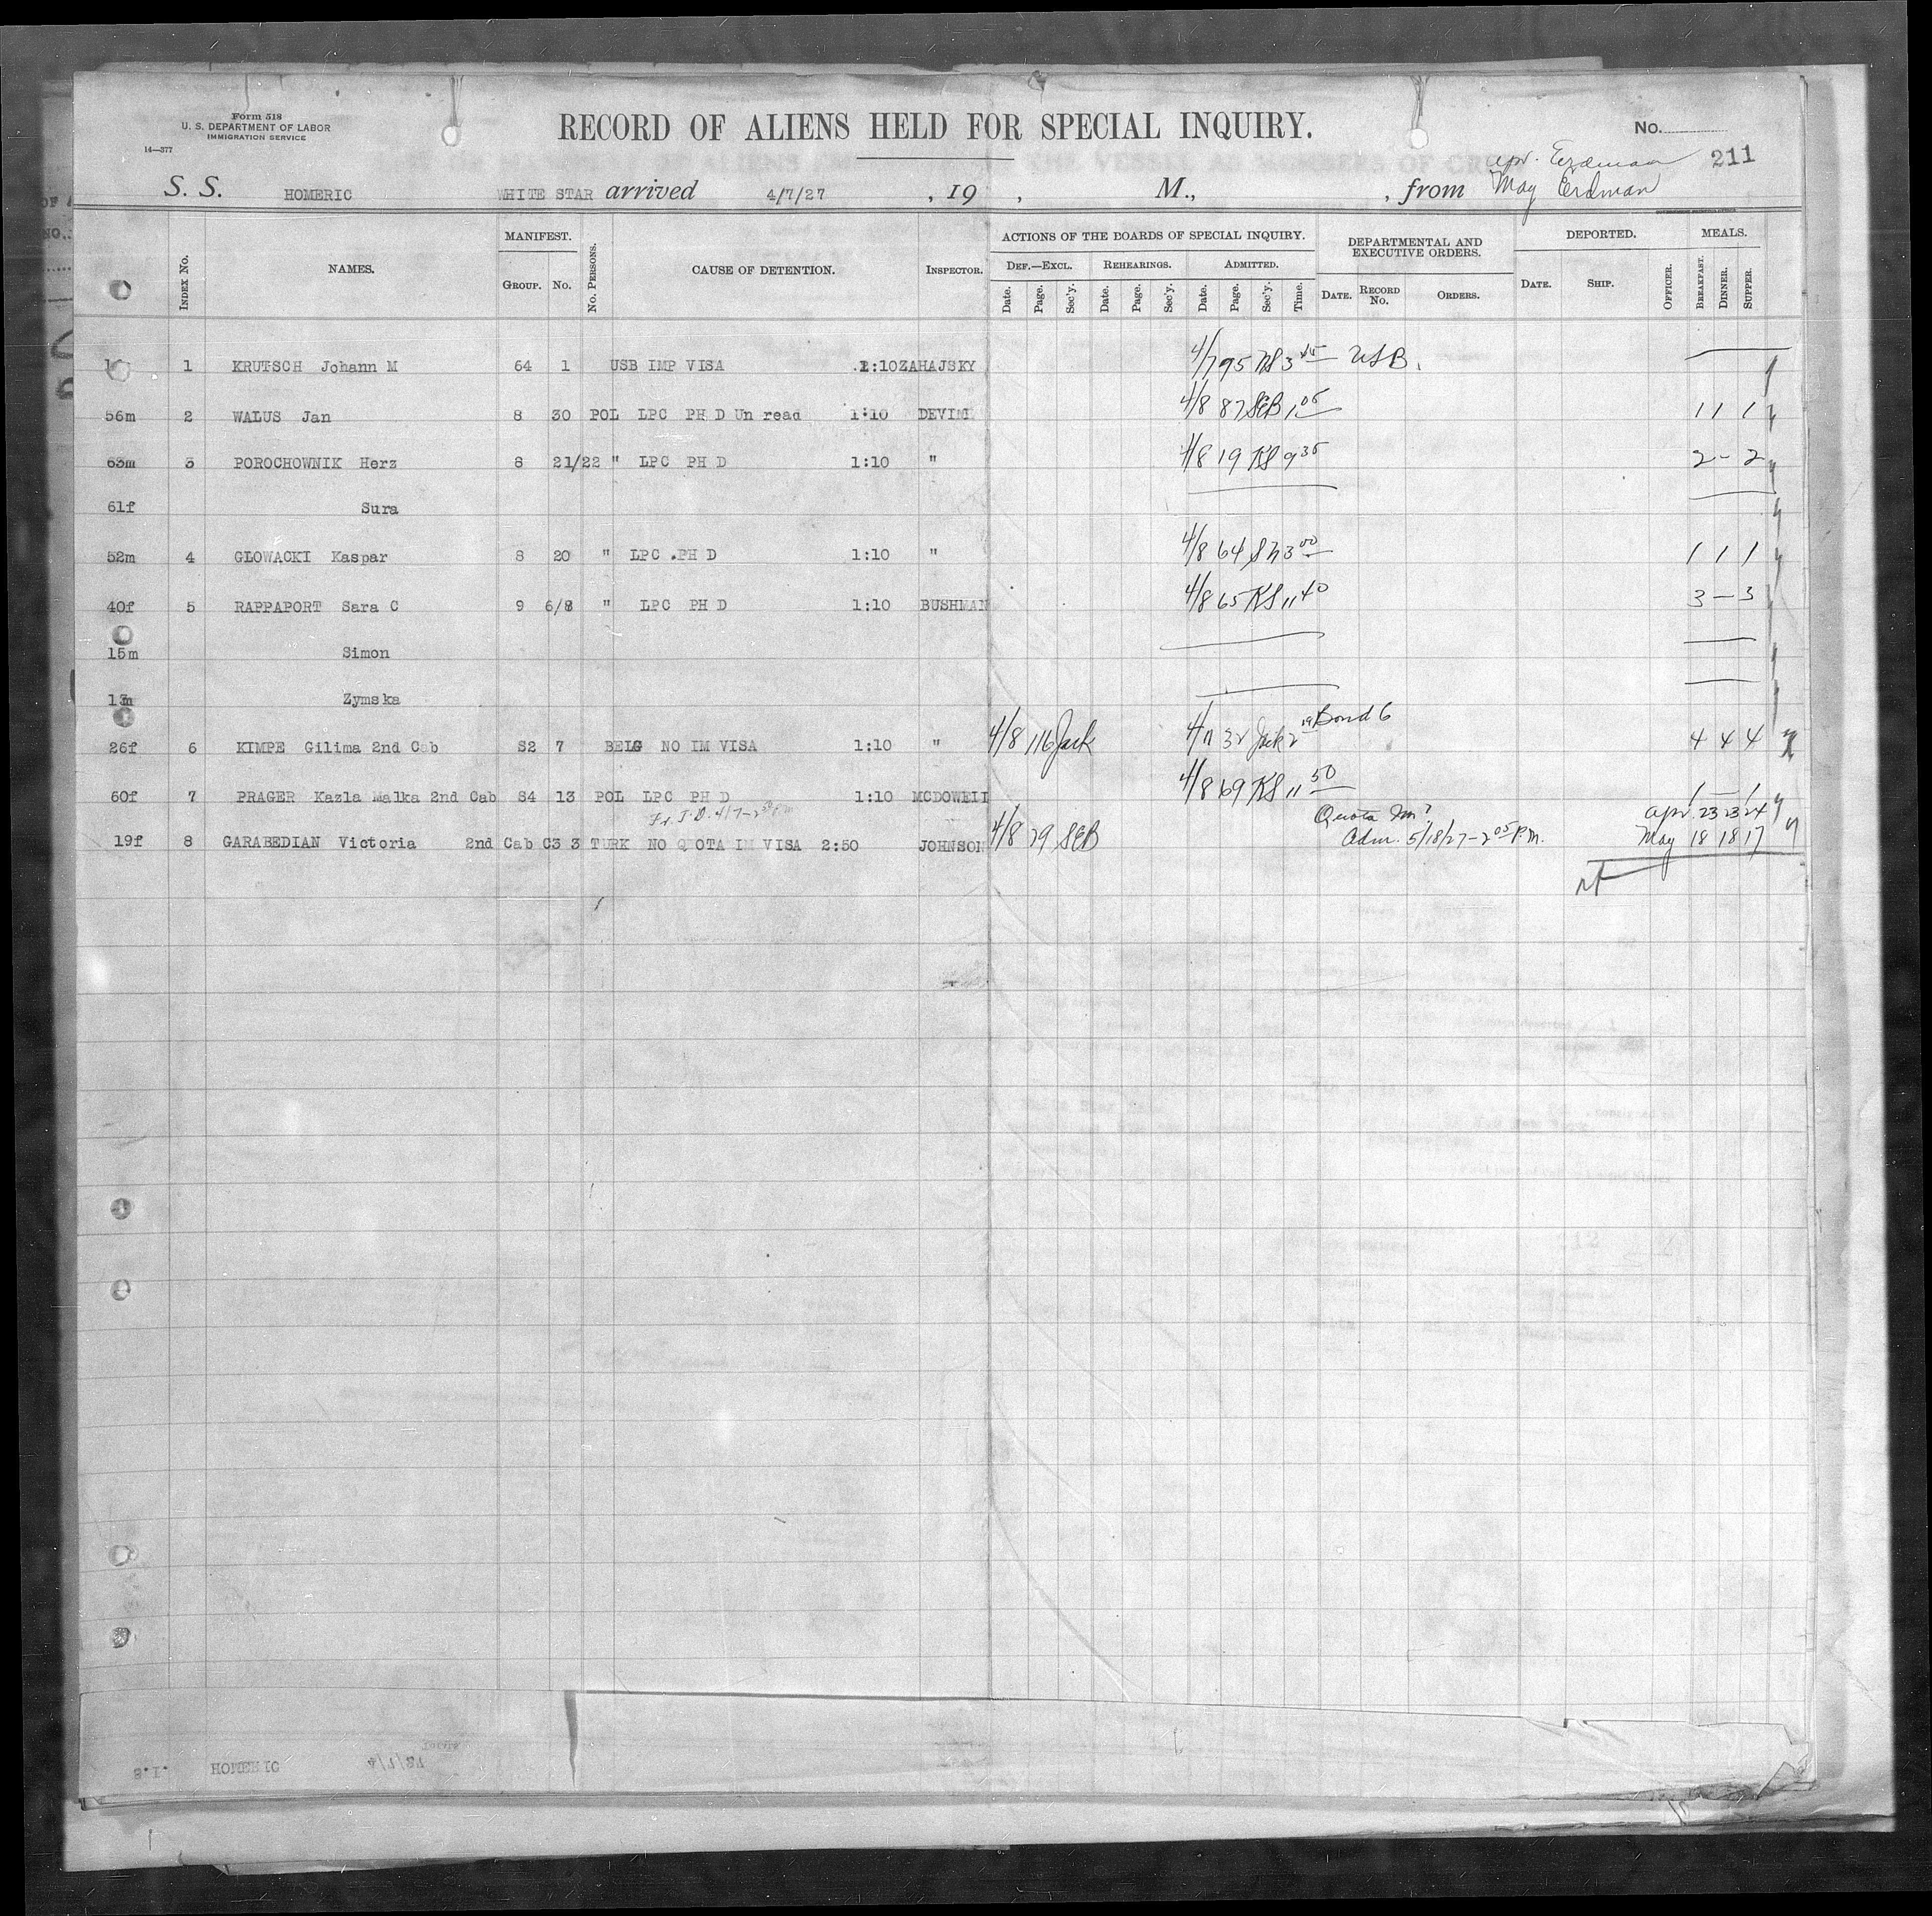 Form 518
U. S. DEPARTMENT OF LABOR
IMMIGRATION SERVICE
14—377
RECORD OF ALIENS HELD FOR SPECIAL INQUIRY.
No.
211
Apr. Erdman
S. S. HOMERIC WHITE STAR arrived 4/7/27 , 19 , M., , from May Erdman
INDEX No. NAMES. MANIFEST. GROUP. No. No. PERSONS. CAUSE OF DETENTION. INSPECTOR. ACTIONS OF THE BOARDS OF SPECIAL INQUIRY. DEF.—EXCL. Date. Page. Sec'y. REHEARINGS. Date. Page. Sec'y. ADMITTED. Date. Page. Sec'y. Time. DEPARTMENTAL AND EXECUTIVE ORDERS. DATE. RECORD No. ORDERS. DEPORTED. DATE. SHIP. OFFICER. MEALS. BREAKFAST. DINNER. SUPPER.
1 KRUTSCH Johann M 64 1 USB IMP VISA 1:10 ZAHAJSKY 4/7 95 NS 3 45 USB.
56m 2 WALUS Jan 8 30 POL LPC PH D Un read 1:10 DEVINE 4/8 87 SEB 1 05 1 1 1
63m 3 POROCHOWNIK Herz 8 21/22 " LPC PH D 1:10 " 4/8 19 KS 9 35 2 – 2
61f Sura
52m 4 GLOWACKI Kaspar 8 20 " LPC PH D 1:10 " 4/8 64 3 00 1 1 1
40f 5 RAPPAPORT Sara C 9 6/8 " LPC PH D 1:10 BUSHMAN 4/8 65 KS 11 40 3 – 3
15m Simon
13m Zymska
26f 6 KIMPE Gilima 2nd Cab S2 7 BELG NO IM VISA 1:10 " 4/8 116 Jack 4/11 32 Jack 2 Bond 6 4 4 4
60f 7 PRAGER Kazla Malka 2nd Cab S4 13 POL LPC PH D 1:10 MCDOWELL 4/8 69 KS 11 50 1 – 1
Fr T.D. 4/7–2 50 PM
Quota Im? Apr. 23 23 24
19f 8 GARABEDIAN Victoria 2nd Cab C3 3 TURK NO QUOTA IM VISA 2:50 JOHNSON 4/8 79 SEB Adm. 5/18/27–2 05 P.M. May 18 18 17
S.I. HOMERIC 4/7/27